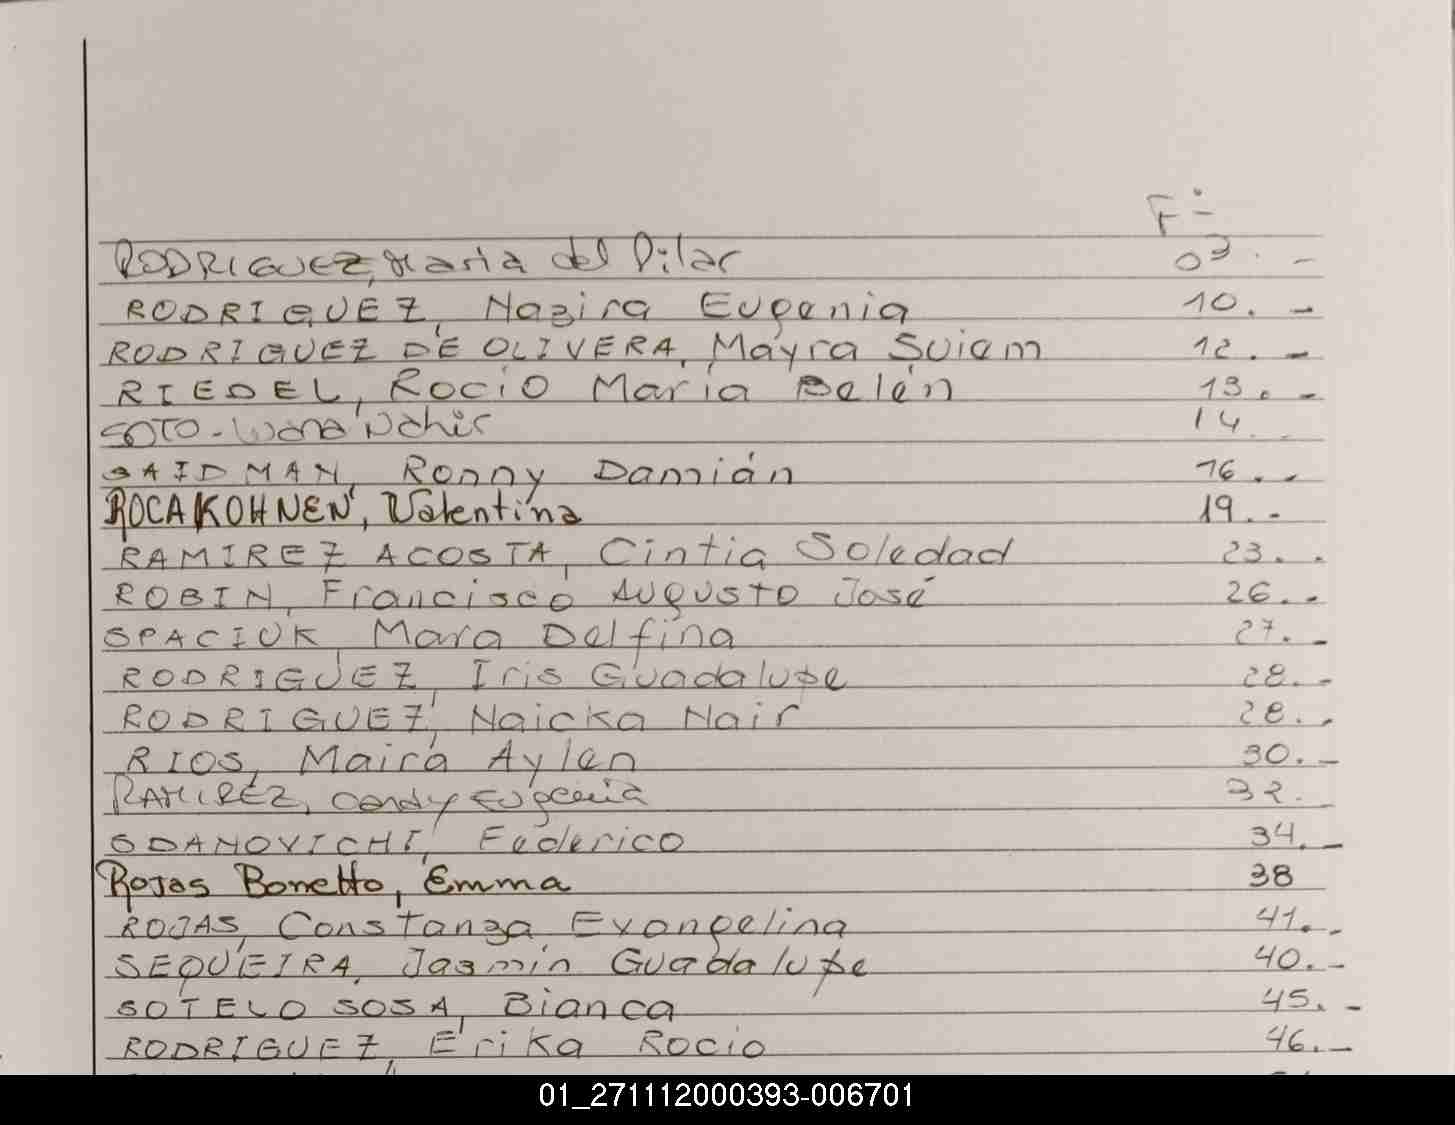 Fº
RODRIGUEZ, Maria del Pilar 03. -
RODRIGUEZ, Nazira Eugenia 10. -
RODRIGUEZ DE OLIVERA, Mayra Suiem 12. -
RIEDEL, Rocio Maria Belén 13. -
SOTO - Nahir 14
SAIDMAN, Ronny Damián 16. -
ROCA KOHNEN, Valentina 19. -
RAMIREZ ACOSTA, Cintia Soledad 23. -
ROBIN, Francisco Augusto José 26. -
SPACIUK, Mara Delfina 27. -
RODRIGUEZ, Iris Guadalupe 28. -
RODRIGUEZ, Naicka Nair 28. -
RIOS, Maira Aylen 30. -
RAMIREZ, Candy Eugenia 32.
SDANOVICHI, Federico 34. -
Rojas Bonetto, Emma 38
ROJAS, Constanza Evangelina 41. -
SEQUEIRA, Jasmin Guadalupe 40. -
SOTELO SOSA, Bianca 45. -
RODRIGUEZ, Erika Rocio 46. -
01_271112000393-006701